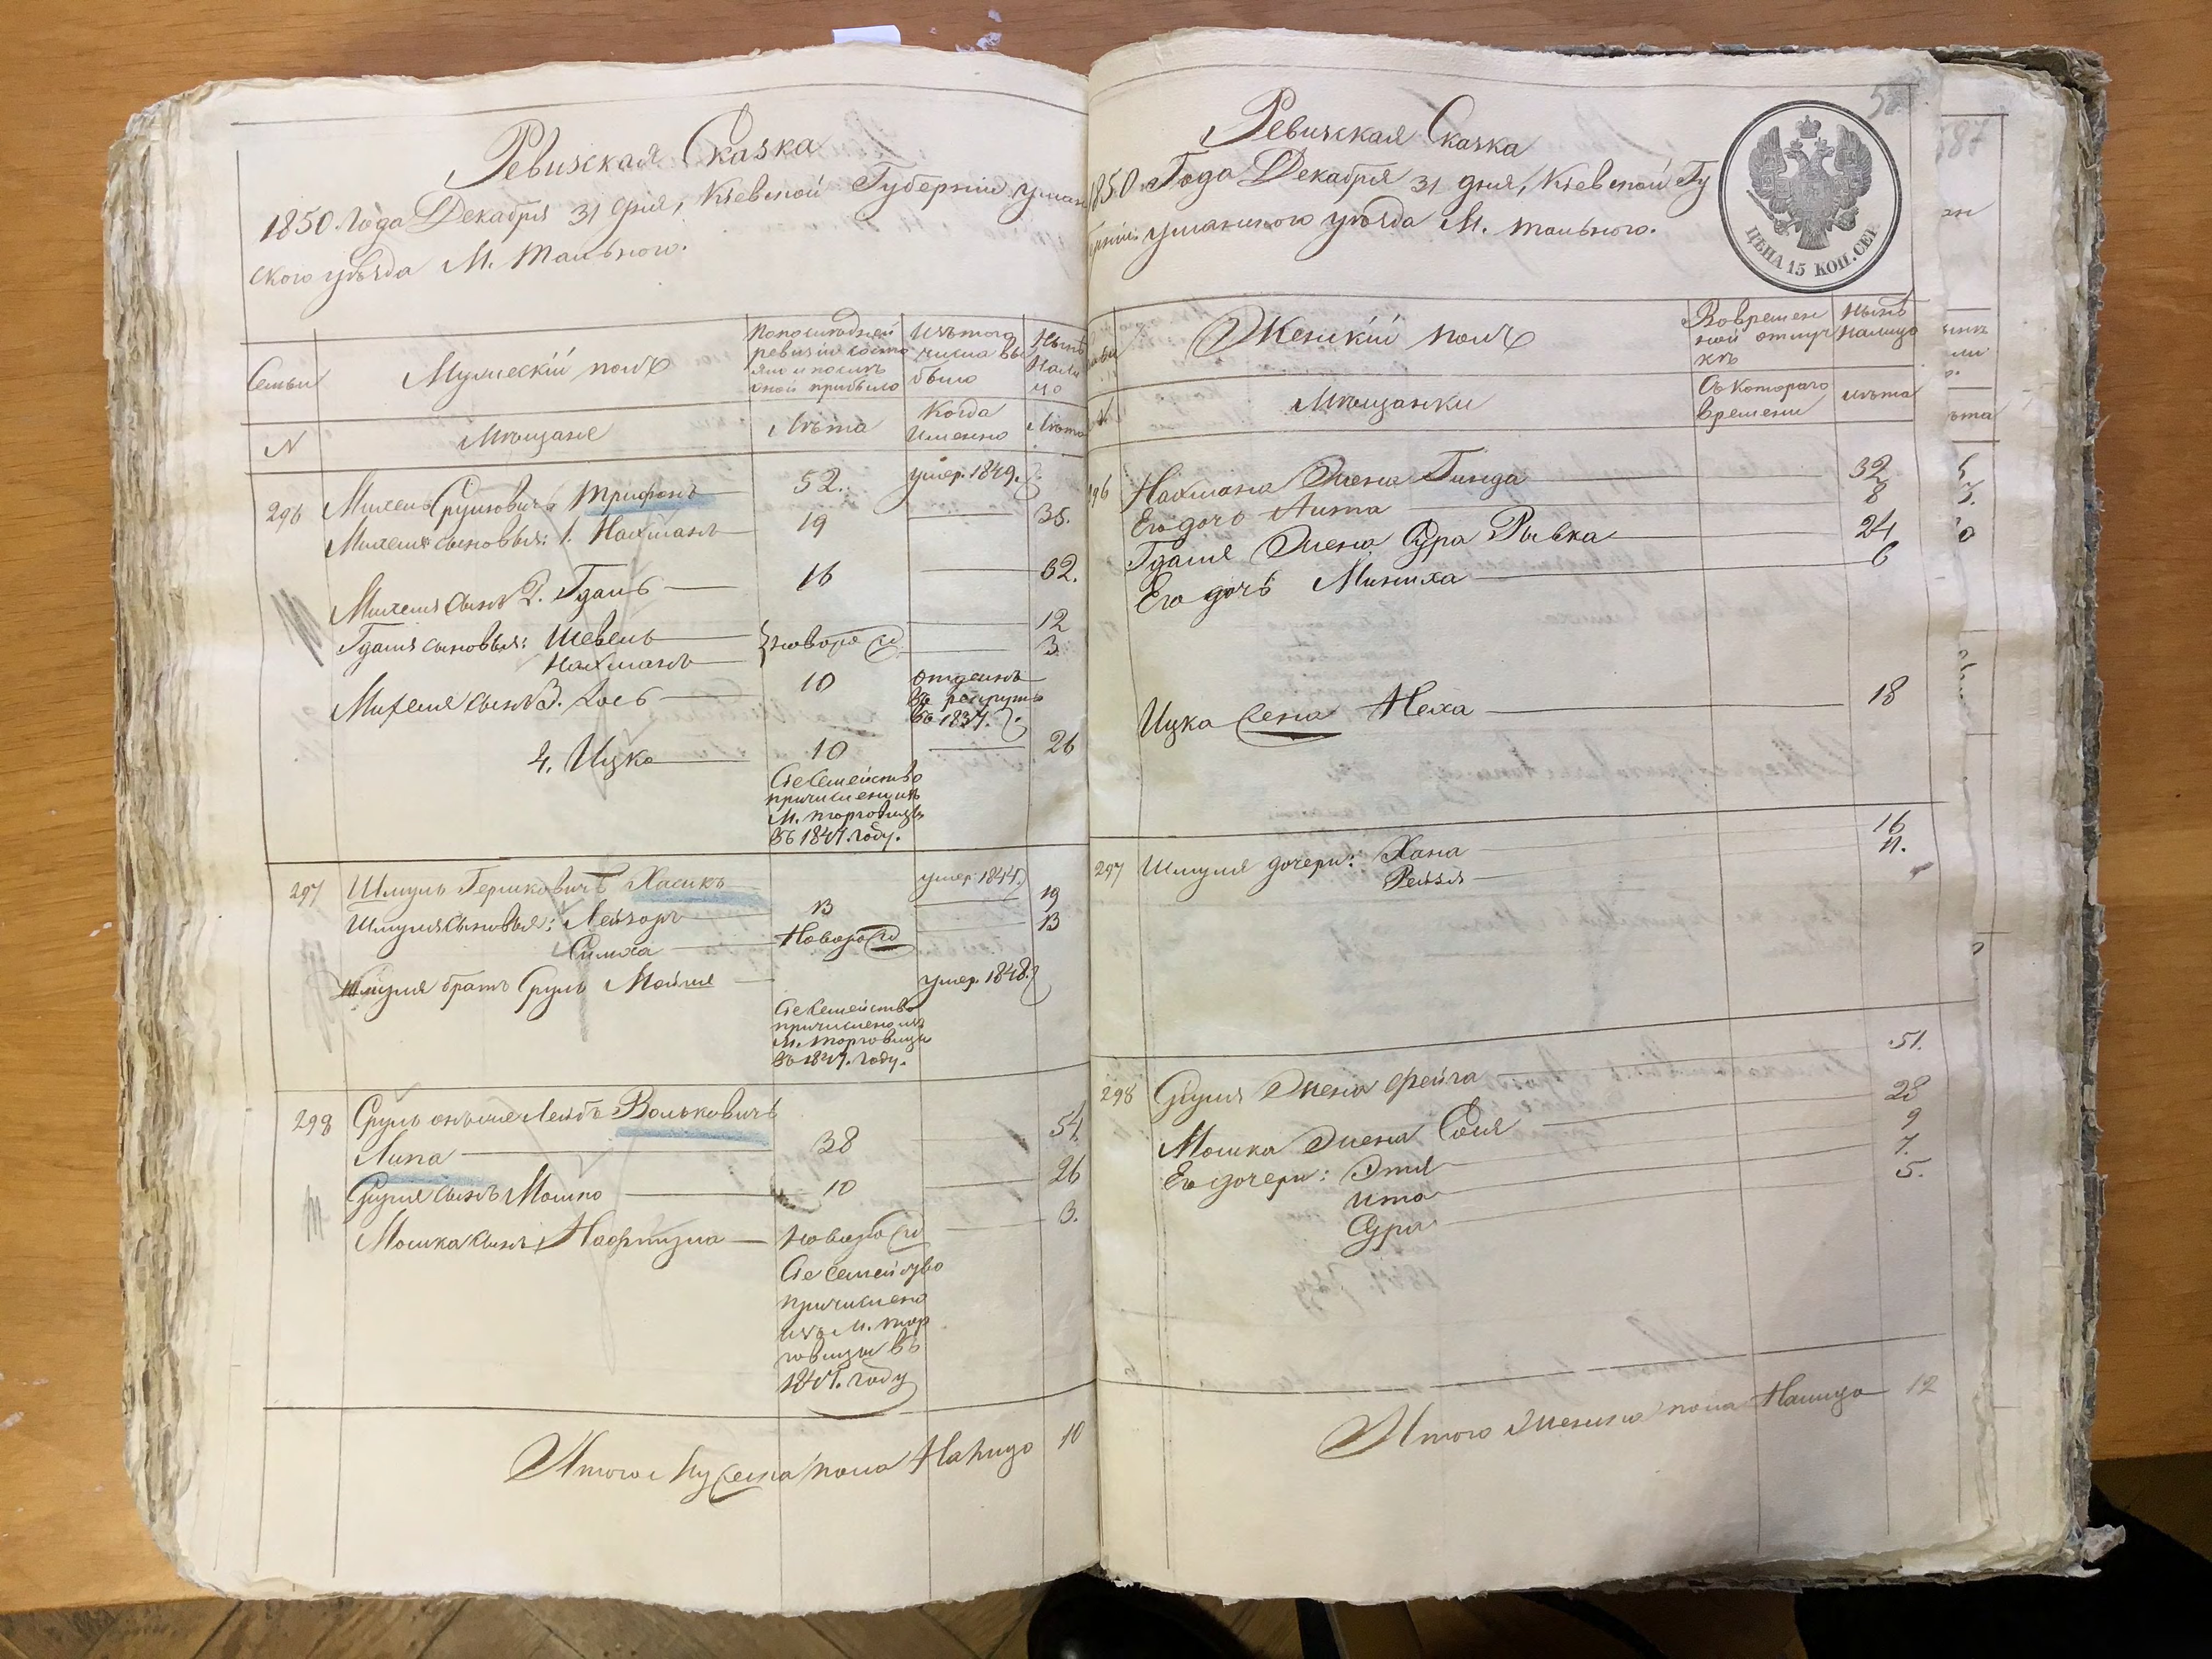 Ревизская Сказка
1850 Года Декабря 31 дня, Кіевской Губерніи Уман
ского уѣзда М. Тального.
Семьи
Мужескій полъ
По последней ревизіи состояло и после оной прибыло
Изъ того числа выбыло
Нынѣ налицо
N
Мѣщане
Лѣта
Когда Именно
Лѣта
296 Михель Сруловичъ Трифонъ 52. умер. 1849.
Михеля сыновья: 1. Нахманъ 19 35.
Михеля сынъ 2. Гдаль 16 32.
Гдаля сыновья: Шевель 12
Нахманъ новорож 3.
Михеля сынъ 3. Іось 10 отданъ
въ рекруты
въ 1837.
4. Ицко 10 26
Сіе Семейство
причислено изъ
М. Торговицы
въ 1847. году.
297 Шмуль Гершковичъ Хасикъ умер. 1844.
Шмуля сыновья: Лейзоръ 13 19
Симха Новорож 13
Шмуля братъ Сруль Мойше умер. 1848.
Сіе Семейство
причислено изъ
М. Торговицы
въ 1847. году.
298 Сруль онъ же Лейбъ Вольковичъ
Липа 38 54.
Сруля сынъ Мошко 10 26
Мошка сынъ Нафтула новорож 3.
Сіе Семейство
причислено
изъ М. Тор
говицы въ
1847. году
Итого мужеска пола Налицо 10
Ревизская Сказка
1850 Года Декабря 31 дня, Кіевской Гу
берніи Уманского уѣзда М. Тального.
ЦѢНА 15 КОП. СЕР.
587
Женскій полъ
Во временной отлучкѣ
Нынѣ налицо
Мѣщанки
Съ котораго времени
Лѣта
296 Нахмана Жена Гинда 32
Его дочь Лита 8
Гдаля Жена Сура Рывка 24
Его дочь Миниха 6
Ицка Жена Неха 18
297 Шмуля дочери: Хана 16
Рейзя 11.
298 Сруля Жена Фейга 51.
Мошка Жена Сося 28
Его дочери: Этя 9
Ита 7.
Сура 5.
Итого женска пола Налицо 12